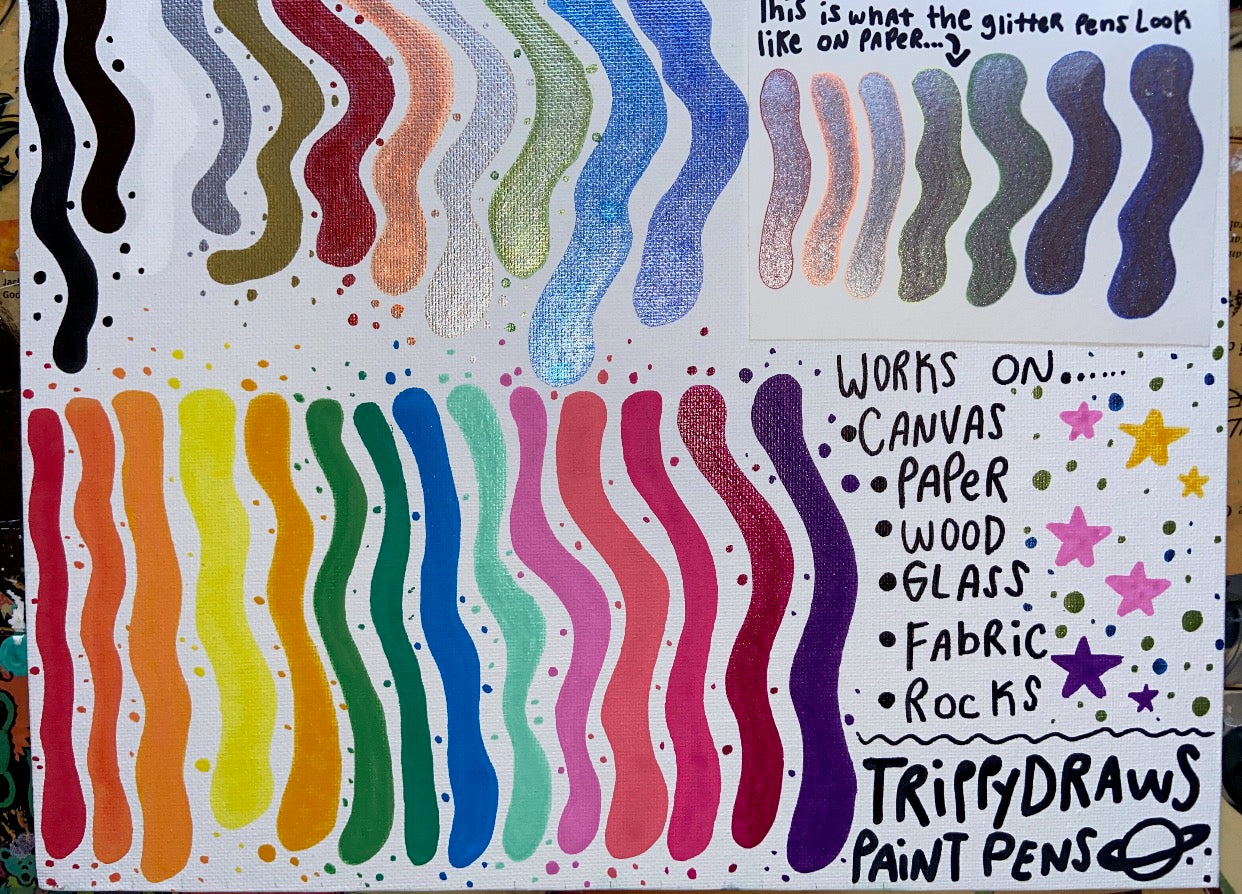 This is what the glitter pens look
like on paper...
WORKS ON......
• CANVAS
• PAPER
• WOOD
• GLASS
• FAbRiC
• ROCKS
TRiPPyDRAWS
PAiNT PENS